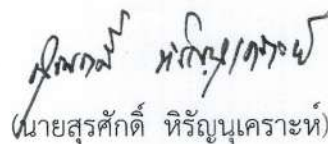 (นายสุรศักดิ์ หิรัญนุเคราะห์)